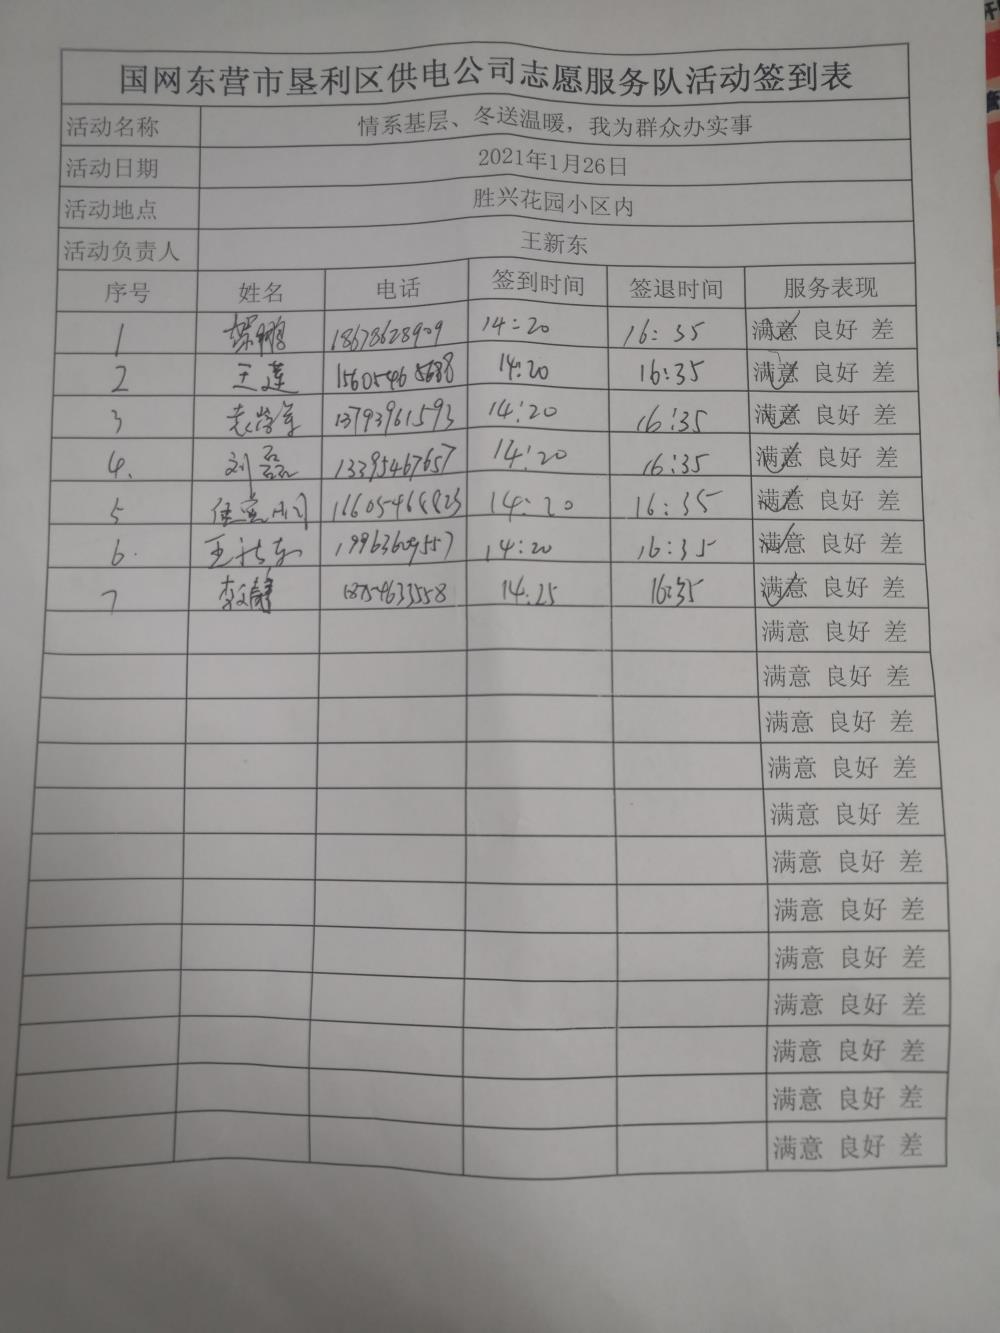 国网东营市垦利区供电公司志愿服务队活动签到表
活动名称 情系基层、冬送温暖，我为群众办实事
活动日期 2021年1月26日
活动地点 胜兴花园小区内
活动负责人 王新东
序号 姓名 电话 签到时间 签退时间 服务表现
1 18678628909 14:20 16:35 满意 良好 差
2 王莲 15605465688 14:20 16:35 满意 良好 差
3 13793961593 14:20 16:35 满意 良好 差
4. 刘磊 13395467657 14:20 16:35 满意 良好 差
5 16605468823 14:20 16:35 满意 良好 差
6. 王新东 19963609557 14:20 16:35 满意 良好 差
7 李文静 18754633558 14:25 16:35 满意 良好 差
满意 良好 差
满意 良好 差
满意 良好 差
满意 良好 差
满意 良好 差
满意 良好 差
满意 良好 差
满意 良好 差
满意 良好 差
满意 良好 差
满意 良好 差
满意 良好 差